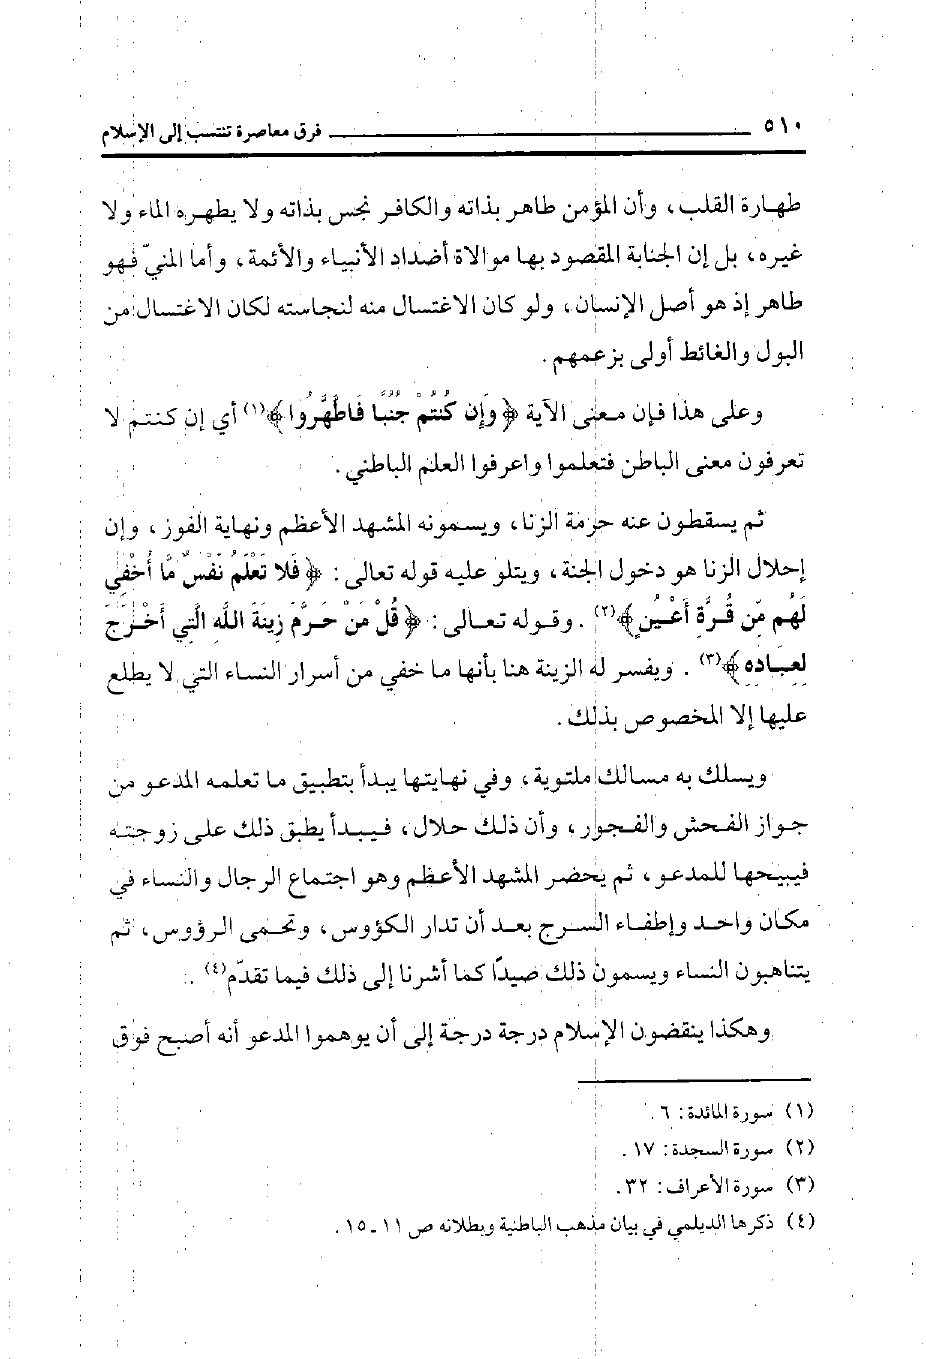 ٥١٠ فرق معاصرة تنتسب إلى الإسلام
طهارة القلب، وأن المؤمن طاهر بذاته والكافر نجس بذاته ولا يطهره الماء ولا
غيره، بل إن الجنابة المقصود بها موالاة أضداد الأنبياء والأئمة، وأما المنيّ فهو
طاهر إذ هو أصل الإنسان، ولو كان الاغتسال منه لنجاسته لكان الاغتسال من
البول والغائط أولى بزعمهم.
وعلى هذا فإن معنى الآية ﴿وَإِن كُنتُمْ جُنُبًا فَاطَّهَّرُوا﴾(١) أي إن كنتم لا
تعرفون معنى الباطن فتعلموا واعرفوا العلم الباطني.
ثم يسقطون عنه حرمة الزنا، ويسمونه المشهد الأعظم ونهاية الفوز، وإن
إحلال الزنا هو دخول الجنة، ويتلو عليه قوله تعالى: ﴿فَلا تَعْلَمُ نَفْسٌ مَّا أُخْفِيَ
لَهُم مِّن قُرَّةِ أَعْيُنٍ﴾(٢). وقوله تعالى: ﴿قُلْ مَنْ حَرَّمَ زِينَةَ اللَّهِ الَّتِي أَخْرَجَ
لِعِبَادِهِ﴾(٣). ويفسر له الزينة هنا بأنها ما خفي من أسرار النساء التي لا يطلع
عليها إلا المخصوص بذلك.
ويسلك به مسالك ملتوية، وفي نهايتها يبدأ بتطبيق ما تعلمه المدعو من
جواز الفحش والفجور، وأن ذلك حلال، فيبدأ يطبق ذلك على زوجته
فيبيحها للمدعو، ثم يحضر المشهد الأعظم وهو اجتماع الرجال والنساء في
مكان واحد وإطفاء السرج بعد أن تدار الكؤوس، وتحمى الرؤوس، ثم
يتناهبون النساء ويسمون ذلك صيدًا كما أشرنا إلى ذلك فيما تقدّم(٤).
وهكذا ينقضون الإسلام درجة درجة إلى أن يوهموا المدعو أنه أصبح فوق
(١) سورة المائدة: ٦.
(٢) سورة السجدة: ١٧.
(٣) سورة الأعراف: ٣٢.
(٤) ذكرها الديلمي في بيان مذهب الباطنية وبطلانه ص ١١ـ١٥.